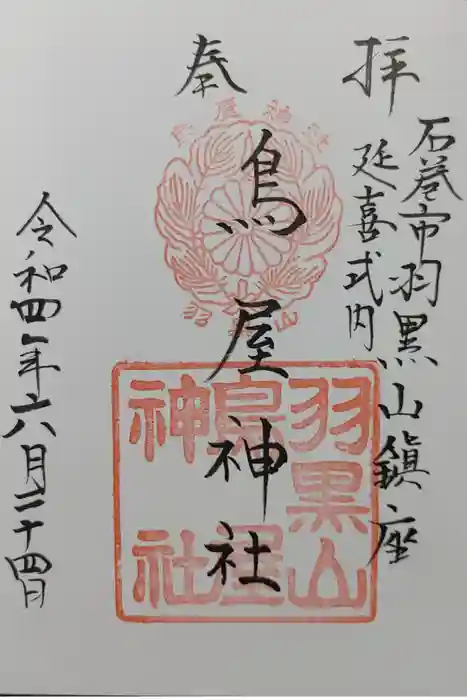 奉拝
石巻市羽黒山鎮座
延喜式内
鳥屋神社
令和四年六月二十四日
鳥屋神社
羽黒山
羽黒山
鳥屋
神社